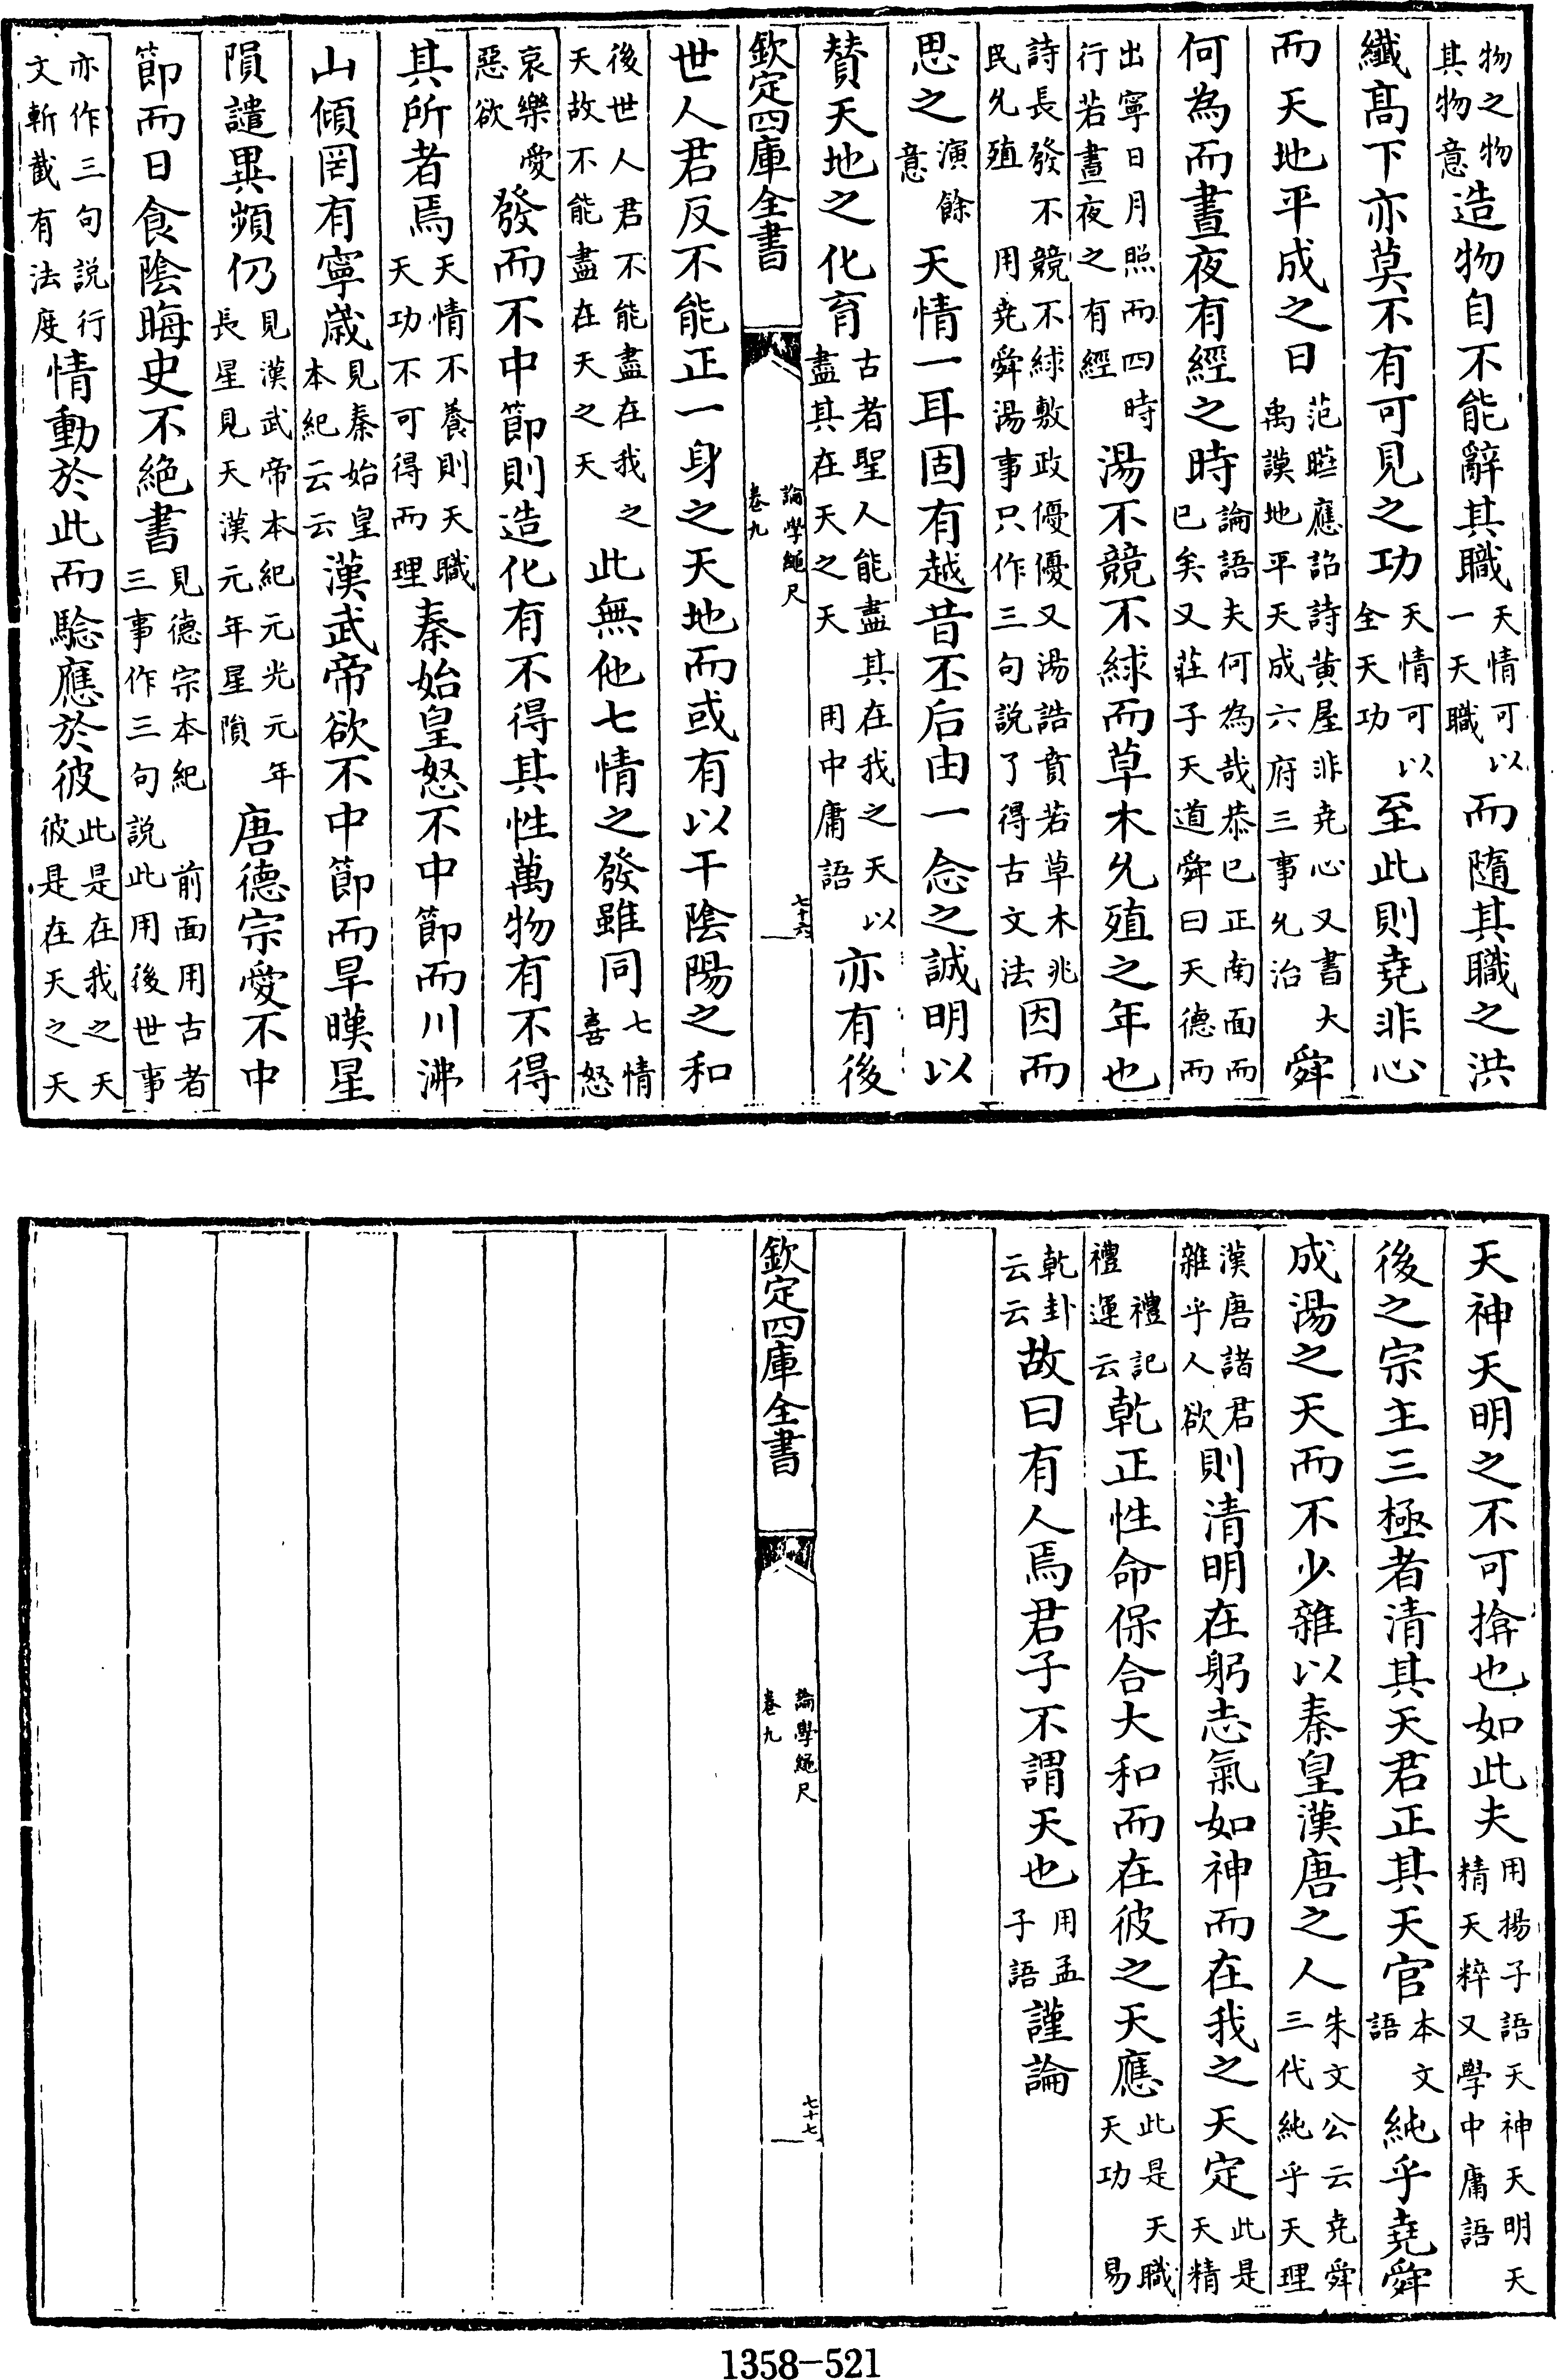 物之物物其物意造物自不能辭其職天情可以一天職而隨其職之洪
纎髙下亦莫不有可見之功天情可以全天功至此則堯非心
而天地平成之日范晤應詔詩黄屋非堯心又書大禹謨地平天成六府三事允治舜
何為而晝夜有經之時論語夫何為哉恭己正南面而已矣又莊子天道舜曰天德而
出寧日月照而四時行若晝夜之有經湯不競不絿而草木允殖之年也
詩長發不競不絿敷政優優又湯誥賁若草木兆民允殖用堯舜湯事只作三句説了得古文法因而
思之演餘意天情一耳固有越昔丕后由一念之誠明以
賛天地之化育古者聖人能盡其在我之天以盡其在天之天用中庸語亦有後
欽定四庫全書
論學繩尺
卷九
七十六
世人君反不能正一身之天地而或有以干陰陽之和
後世人君不能盡在我之天故不能盡在天之天此無他七情之發雖同七情喜怒
哀樂愛惡欲發而不中節則造化有不得其性萬物有不得
其所者焉天情不養則天職天功不可得而理秦始皇怒不中節而川沸
山傾罔有寧歳見秦始皇本紀云云漢武帝欲不中節而旱暵星
隕譴異頻仍見漢武帝本紀元光元年長星見天漢元年星隕唐德宗愛不中
節而日食陰晦史不絶書見德宗本紀前面用古者三事作三句説此用後世事
亦作三句説行文斬截有法度情動於此而驗應於彼此是在我之天彼是在天之天
天神天明之不可揜也如此夫用揚子語天神天明天精天粹又學中庸語
後之宗主三極者清其天君正其天官本文語純乎堯舜
成湯之天而不少雜以秦皇漢唐之人朱文公云堯舜三代純乎天理
漢唐諸君雜乎人欲則清明在躬志氣如神而在我之天定此是天精
禮記禮運云乾正性命保合大和而在彼之天應此是天職天功易
乾卦云云故曰有人焉君子不謂天也用孟子語謹論
欽定四庫全書
論學繩尺
卷九
七十七
1358-521